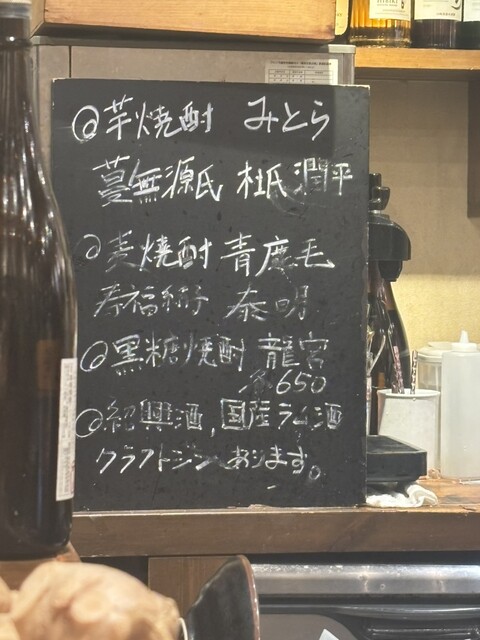 ◎芋焼酎 みとら
蔓無源氏 杜氏潤平
◎麦焼酎 青鹿毛
寿福絹子 泰明
◎黒糖焼酎 龍宮
各650
◎紹興酒,国産ラム酒
クラフトジン あります。